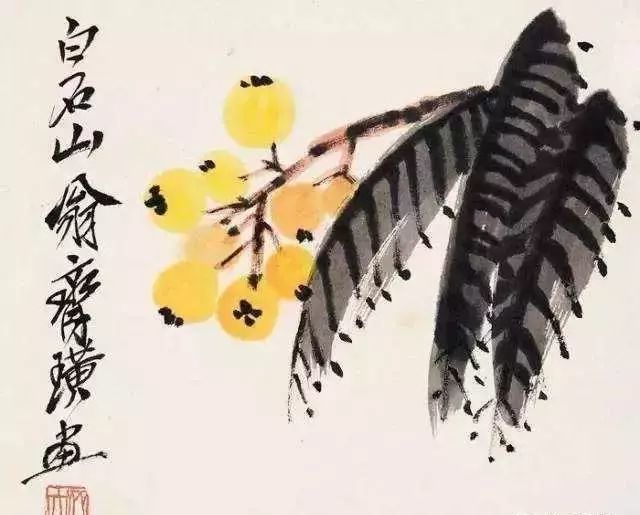 白石山翁齊璜畫